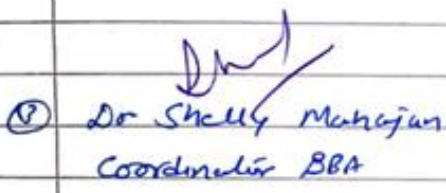 ③ Dr Shelly Mahajan
Coordinator BBA